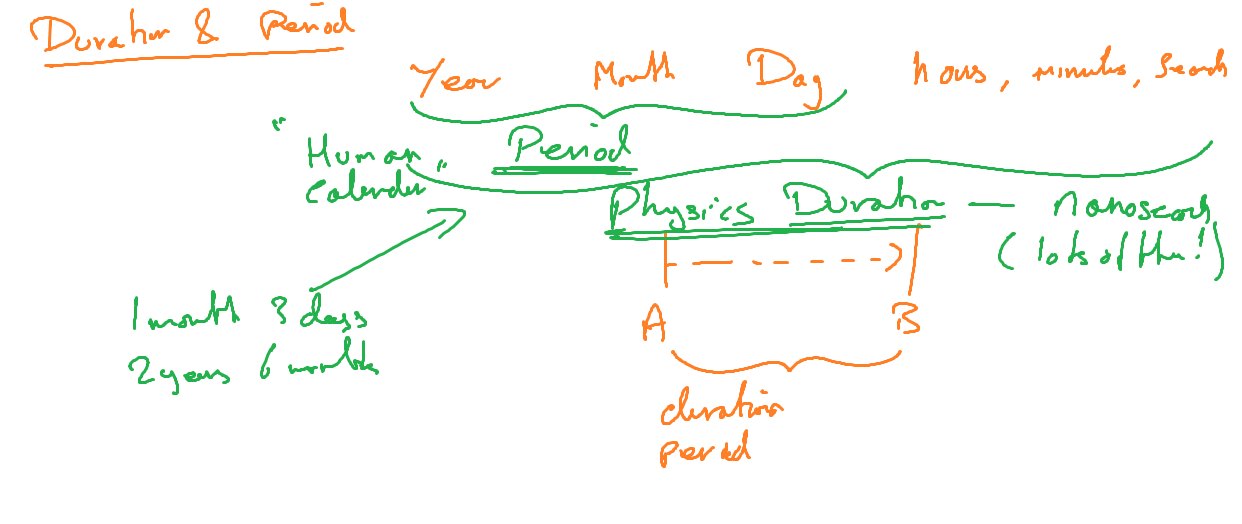 Duration & Period
Year Month Day hours, minutes, seconds
"Human Calender" Period
Physics Duration — nanoseconds
(lots of them!)
1 month 3 days
2 years 6 months
A B
duration
period